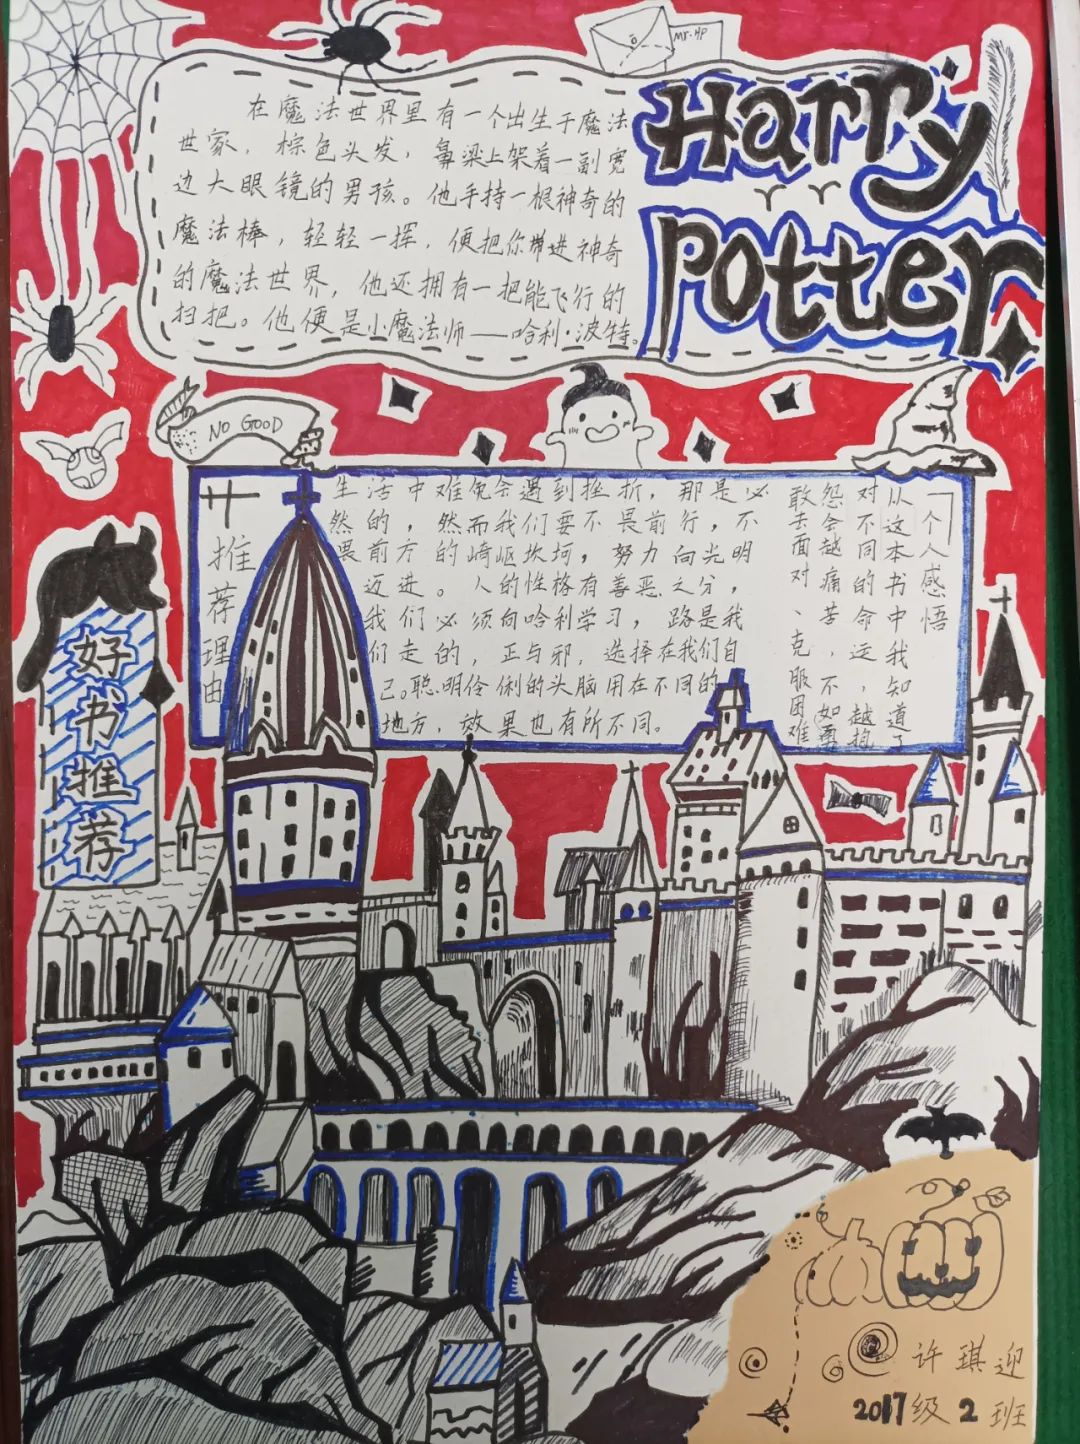 Mr. HP
Harry
Potter
在魔法世界里有一个出生于魔法
世家，棕色头发，鼻梁上架着一副宽
边大眼镜的男孩。他手持一根神奇的
魔法棒，轻轻一挥，便把你带进神奇
的魔法世界，他还拥有一把能飞行的
扫把。他便是小魔法师——哈利·波特。
NO GOOD
好书推荐
推荐理由
生活中难免会遇到挫折，那是必
然的，然而我们要不畏前行，不
畏前方的崎岖坎坷，努力向光明
迈进。人的性格有善恶之分，
我们必须向哈利学习，路是我
们走的，正与邪，选择在我们自
己。聪明伶俐的头脑用在不同的
地方，效果也有所不同。
个人感悟
从这本书中我知道了
对不同的命运，越抱
怨会越痛苦，不如勇
敢去面对、克服困难
许琪迎
2017级2班